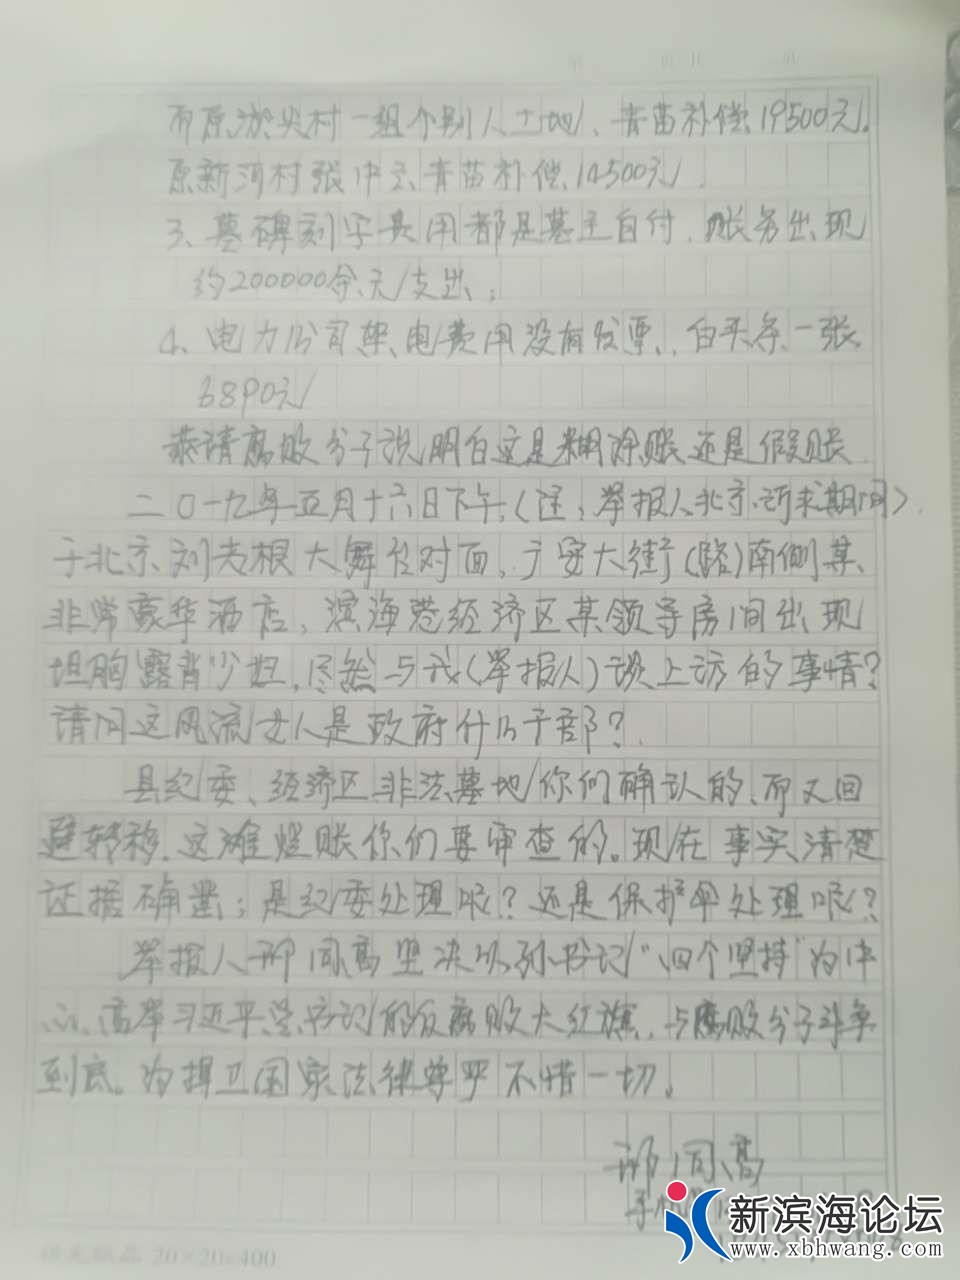 第 页 共 页
而原淤尖村一组个别人土地、青苗补偿19500元。
原新河村张中 青苗补偿14500元。
3、墓碑刻字费用都是墓主自付，账务出现
约200000余元支出；
4、电力公司架电费用没有发票，白头条一张
6890元
恭请腐败分子说明白这是糊涂账还是假账
二〇一九年五月十六日下午，（注：举报人北京诉求期间）
于北京刘老根大舞台对面，广安大街（路）南侧某
非常豪华酒店，滨海港经济区某领导房间出现
坦胸露背少妇，居然与我（举报人）谈上访的事情？
请问这风流女人是政府什么干部？
县纪委、经济区非法墓地你们确认的，而又回
避转移，这滩烂账你们要审查的。现在事实清楚
证据确凿；是纪委处理呢？还是保护伞处理呢？
举报人邢同高坚决以孙书记“四个坚持”为中
心、高举习近平总书记的反腐败大红旗，与腐败分子斗争
到底。为捍卫国家法律尊严不惜一切。
邢同高
手机
新滨海论坛
www.xbhwang.com
20×20=400